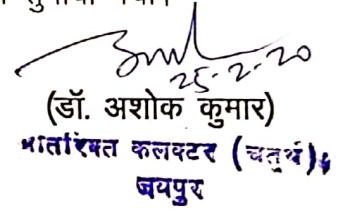 25-2-20
(डॉ. अशोक कुमार)
अतिरिक्त कलक्टर (चतुर्थ)
जयपुर